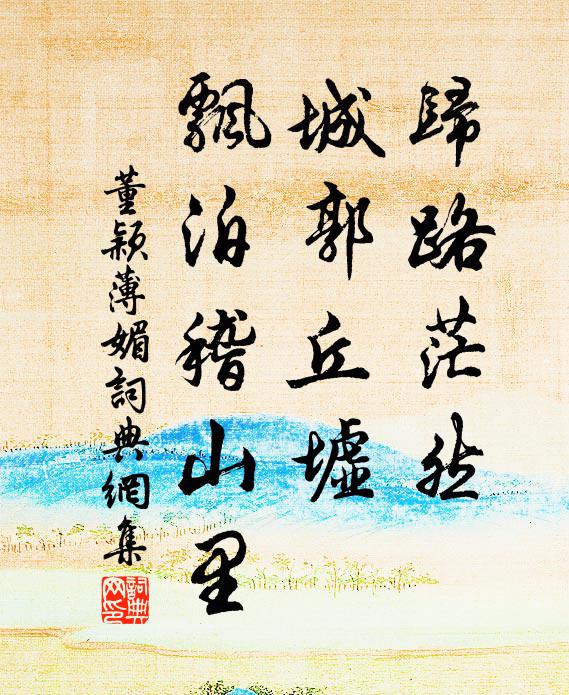 歸路茫然
城郭丘墟
飄泊稽山里
董颖薄媚詞典網集
詞典
网印